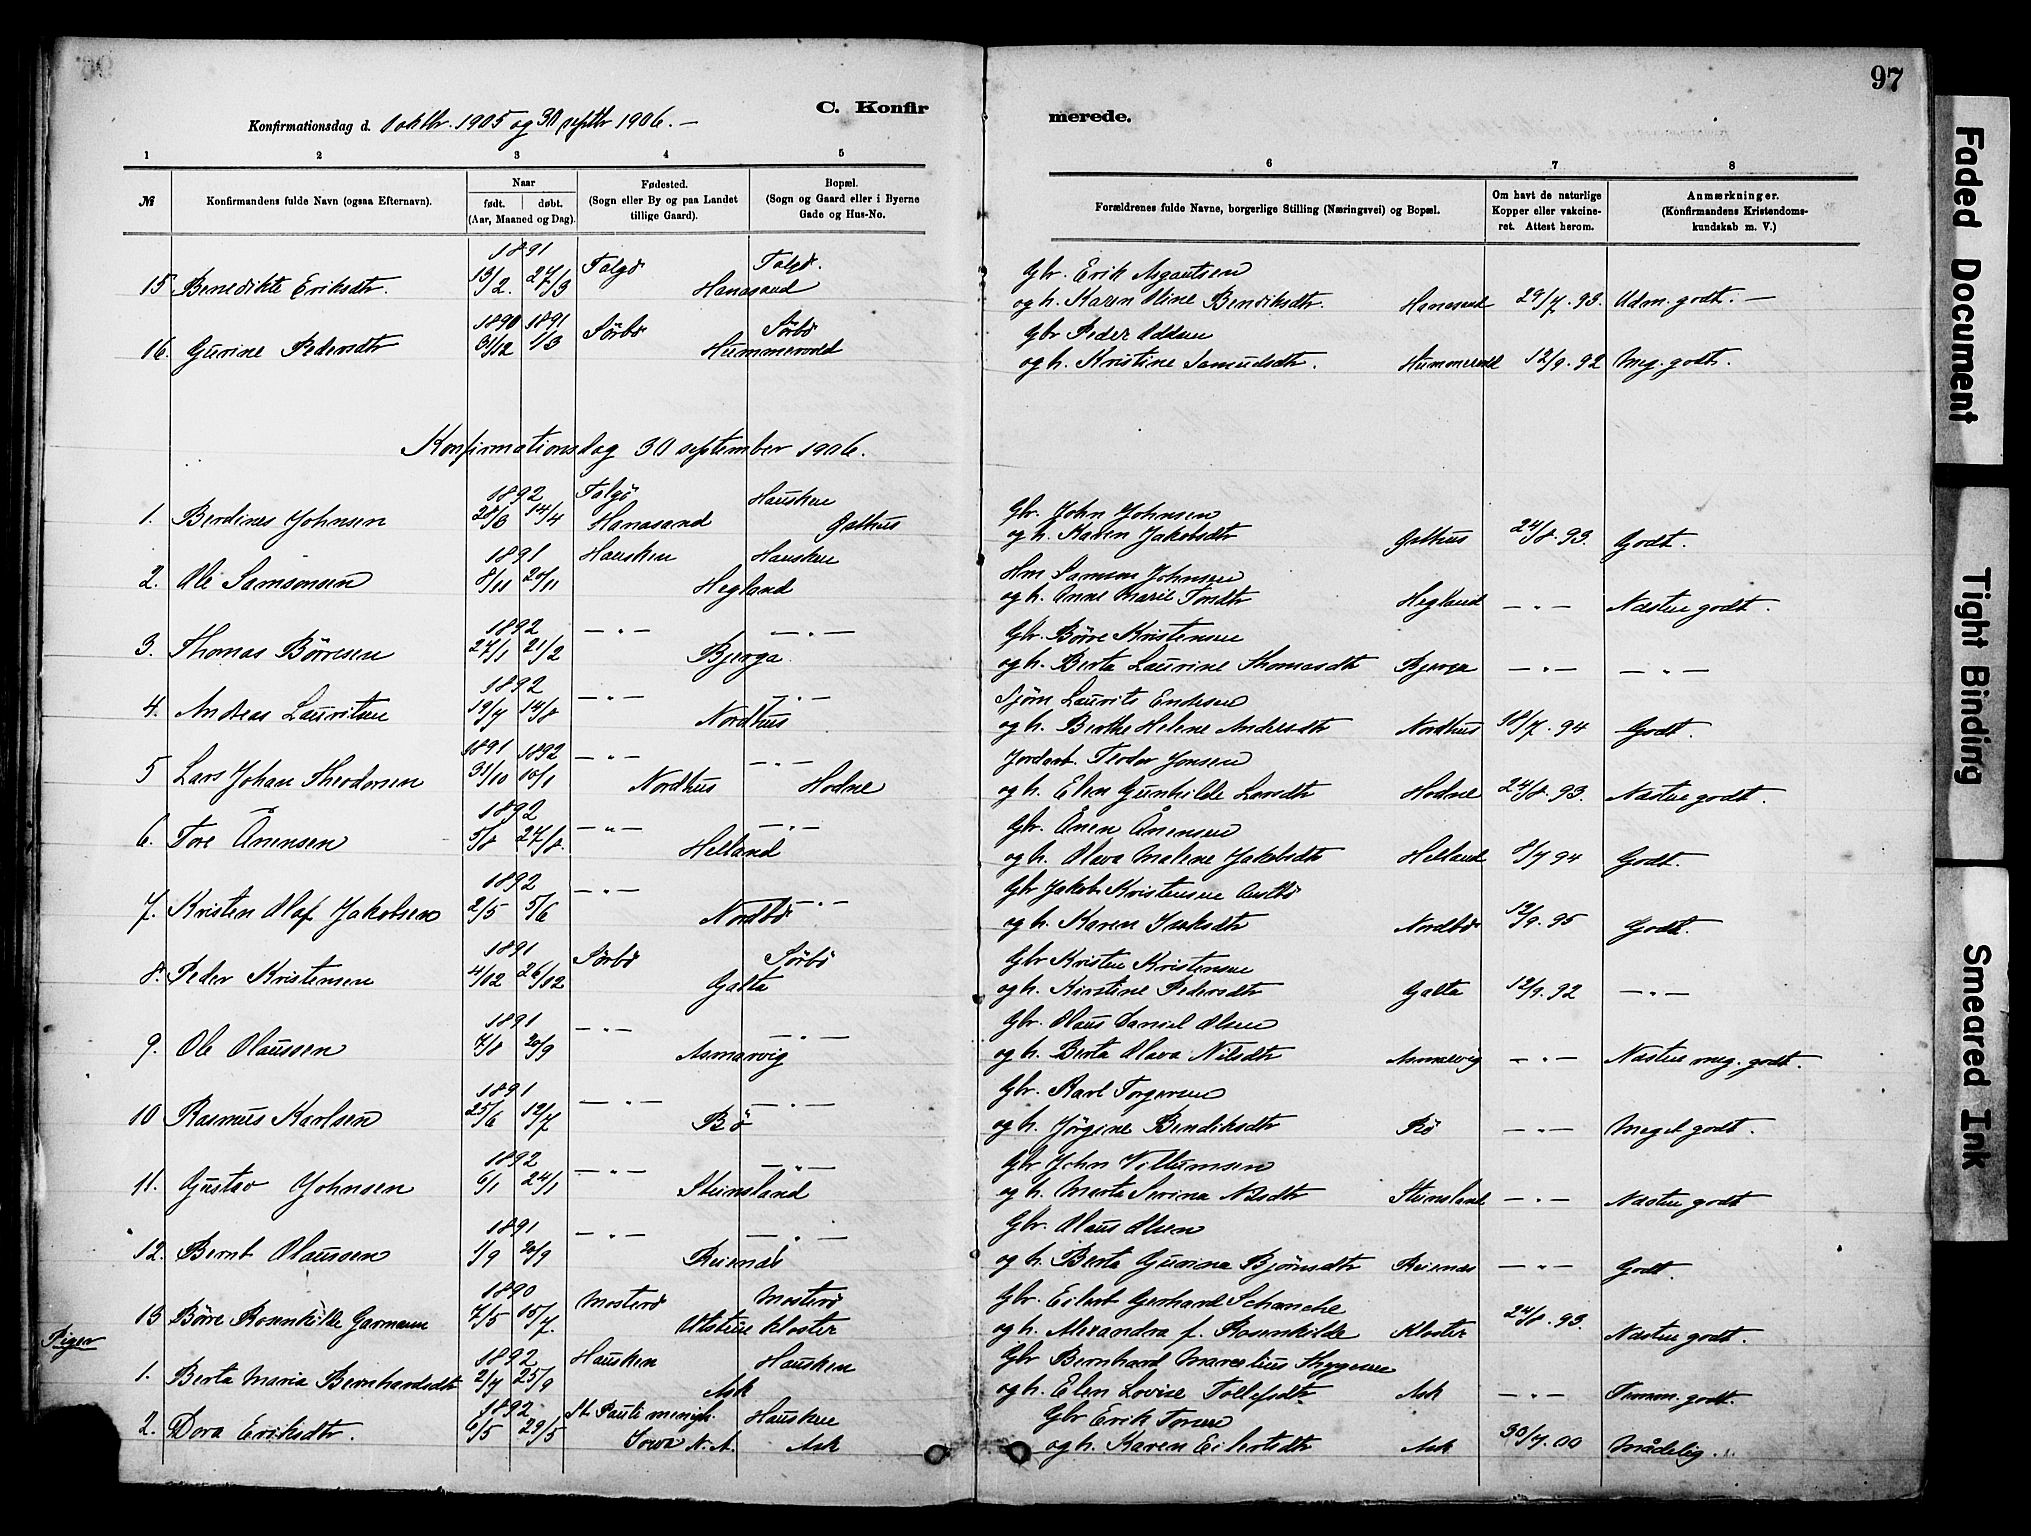 97
C. Konfirmerede.
Konfirmationsdag d. 1 oktbr. 1905 og 30 septbr 1906. —
1 2 3 4 5 6 7 8
№ Konfirmandens fulde Navn (ogsaa Efternavn). Naar født. døbt. (Aar, Maaned og Dag). Fødested. (Sogn eller By og paa Landet tillige Gaard). Bopæl. (Sogn og Gaard eller i Byerne Gade og Hus-No. Forældrenes fulde Navne, borgerlige Stilling (Næringsvei) og Bopæl. Om havt de naturlige Kopper eller vakcineret. Attest herom. Anmærkninger. (Konfirmandens Kristendomskundskab m. V.)
1891 Talgø Talgø. Gbr. Erik Asgautsen
15 Benedikte Eriksdtr. 13/2. 27/3 Hanasand og h. Karen Oline Bendiksdtr. Hanasand 29/7. 93. Udm. godt. —
1890 1891 Sørbø Sørbø Gbr Peder Oddsen
16. Gurine Pedersdtr 31/12 1/3 Hummervold og h. Kristine Samuelsdtr. Hummervold 12/9. 92 Meg. godt.
Konfirmationsdag 30 september 1906.
1892 Talgø Hausken Gbr. John Johnsen
1. Berdines Johnsen 28/3 14/4 Hanasand Galthus og h. Karen Jakobsdtr Galthus 24/8. 93. Godt.
1891 Hausken Hausken Hm Samson Johnsen
2. Ole Samsonsen 8/11 20/11 Hegland og h. Anne Marie Tondtr Hegland — " — Næsten godt.
1892 — " — — " — Gbr. Børre Kristensen
3. Thomas Børresen 27/1 21/2 Bjerga og h. Berta Laurine Thomasdtr Bjerga — " — — " —
1892 — " — — " — Sjøm Laurits Endesen
4. Andreas Lauritsen 19/7 14/8 Nordhus og h. Berthe Helene Andersdtr Nordhus 18/7. 94 Godt.
1891 1892 — " — — " — Jordarb. Teodor Jonsen
5 Lars Johan Theodorsen 31/10 10/1 Nordhus Hodne og h. Elen Gunhilde Larsdtr Hodne 24/8. 93. Næsten godt.
1892 — " — — " — Gbr. Ånen Ånensen
6. Tore Ånensen 5/8 27/8. Helland og h. Olava Malene Jakobsdtr Helland 8/7 94 Godt.
1892 — " — — " — Gbr Jakob Kristensen Austbø
7. Kristen Olaf Jakobsen 2/5 5/6 Nordbø og h. Karen Isaksdtr Nordbø 12/9. 95 Godt.
1891 Sørbø Sørbø Gbr Kristen Kristensen
8. Peder Kristensen 4/12 26/12 Galta og h. Kirstine Pedersdtr Galta 12/9. 92 — " —
1891 — " — — " — Gbr. Olaus Daniel Olsen
9. Ole Olaussen 7/8 20/9 Asmarvig og h. Berta Olava Nilsdtr Asmarvig — " — Næsten meg. godt.
1891 — " — — " — Gbr. Karl Torgersen
10 Rasmus Karlsen 25/6 12/7 Bø og h. Jørgine Bendiksdtr Bø — " — Meget godt.
1892 — " — — " — Gbr John Villumsen
11. Gustav Johnsen 6/1 24/1 Steinsland og h. Marta Serina Nilsdtr Steinsland — " — Næsten godt
1891 — " — — " — Gbr. Olaus Olsen
12. Bernt Olaussen 1/9 20/9 Reienæs og h. Berta Gurina Bjørnsdtr Reienæs — " — Godt.
1890 Mosterø Mosterø Gbr. Eilert Gerhard Schanche
13 Børre Rosenkilde Garmann 7/5 10/7. Utstein Kloster og h. Alexandra f. Rosenkilde Kloster 24/8. 93. Næsten godt.
Piger
1892 Hausken Hausken Gbr Bernhard Marselius Thygesen
1. Berta Maria Bernhardsdtr 2/7 25/9 Ask og h. Elen Lovise Tollefsdtr Ask — " — Temm. godt.
1892 St. Pauli menigh. Hausken Gbr Erik Toresen
2. Dora Eriksdtr. 6/5 29/5 Iowa N. A. Ask og h. Karen Eilertsdtr Ask 30/7. 00 Mådelig.
Faded Document
Tight Binding
Smeared Ink